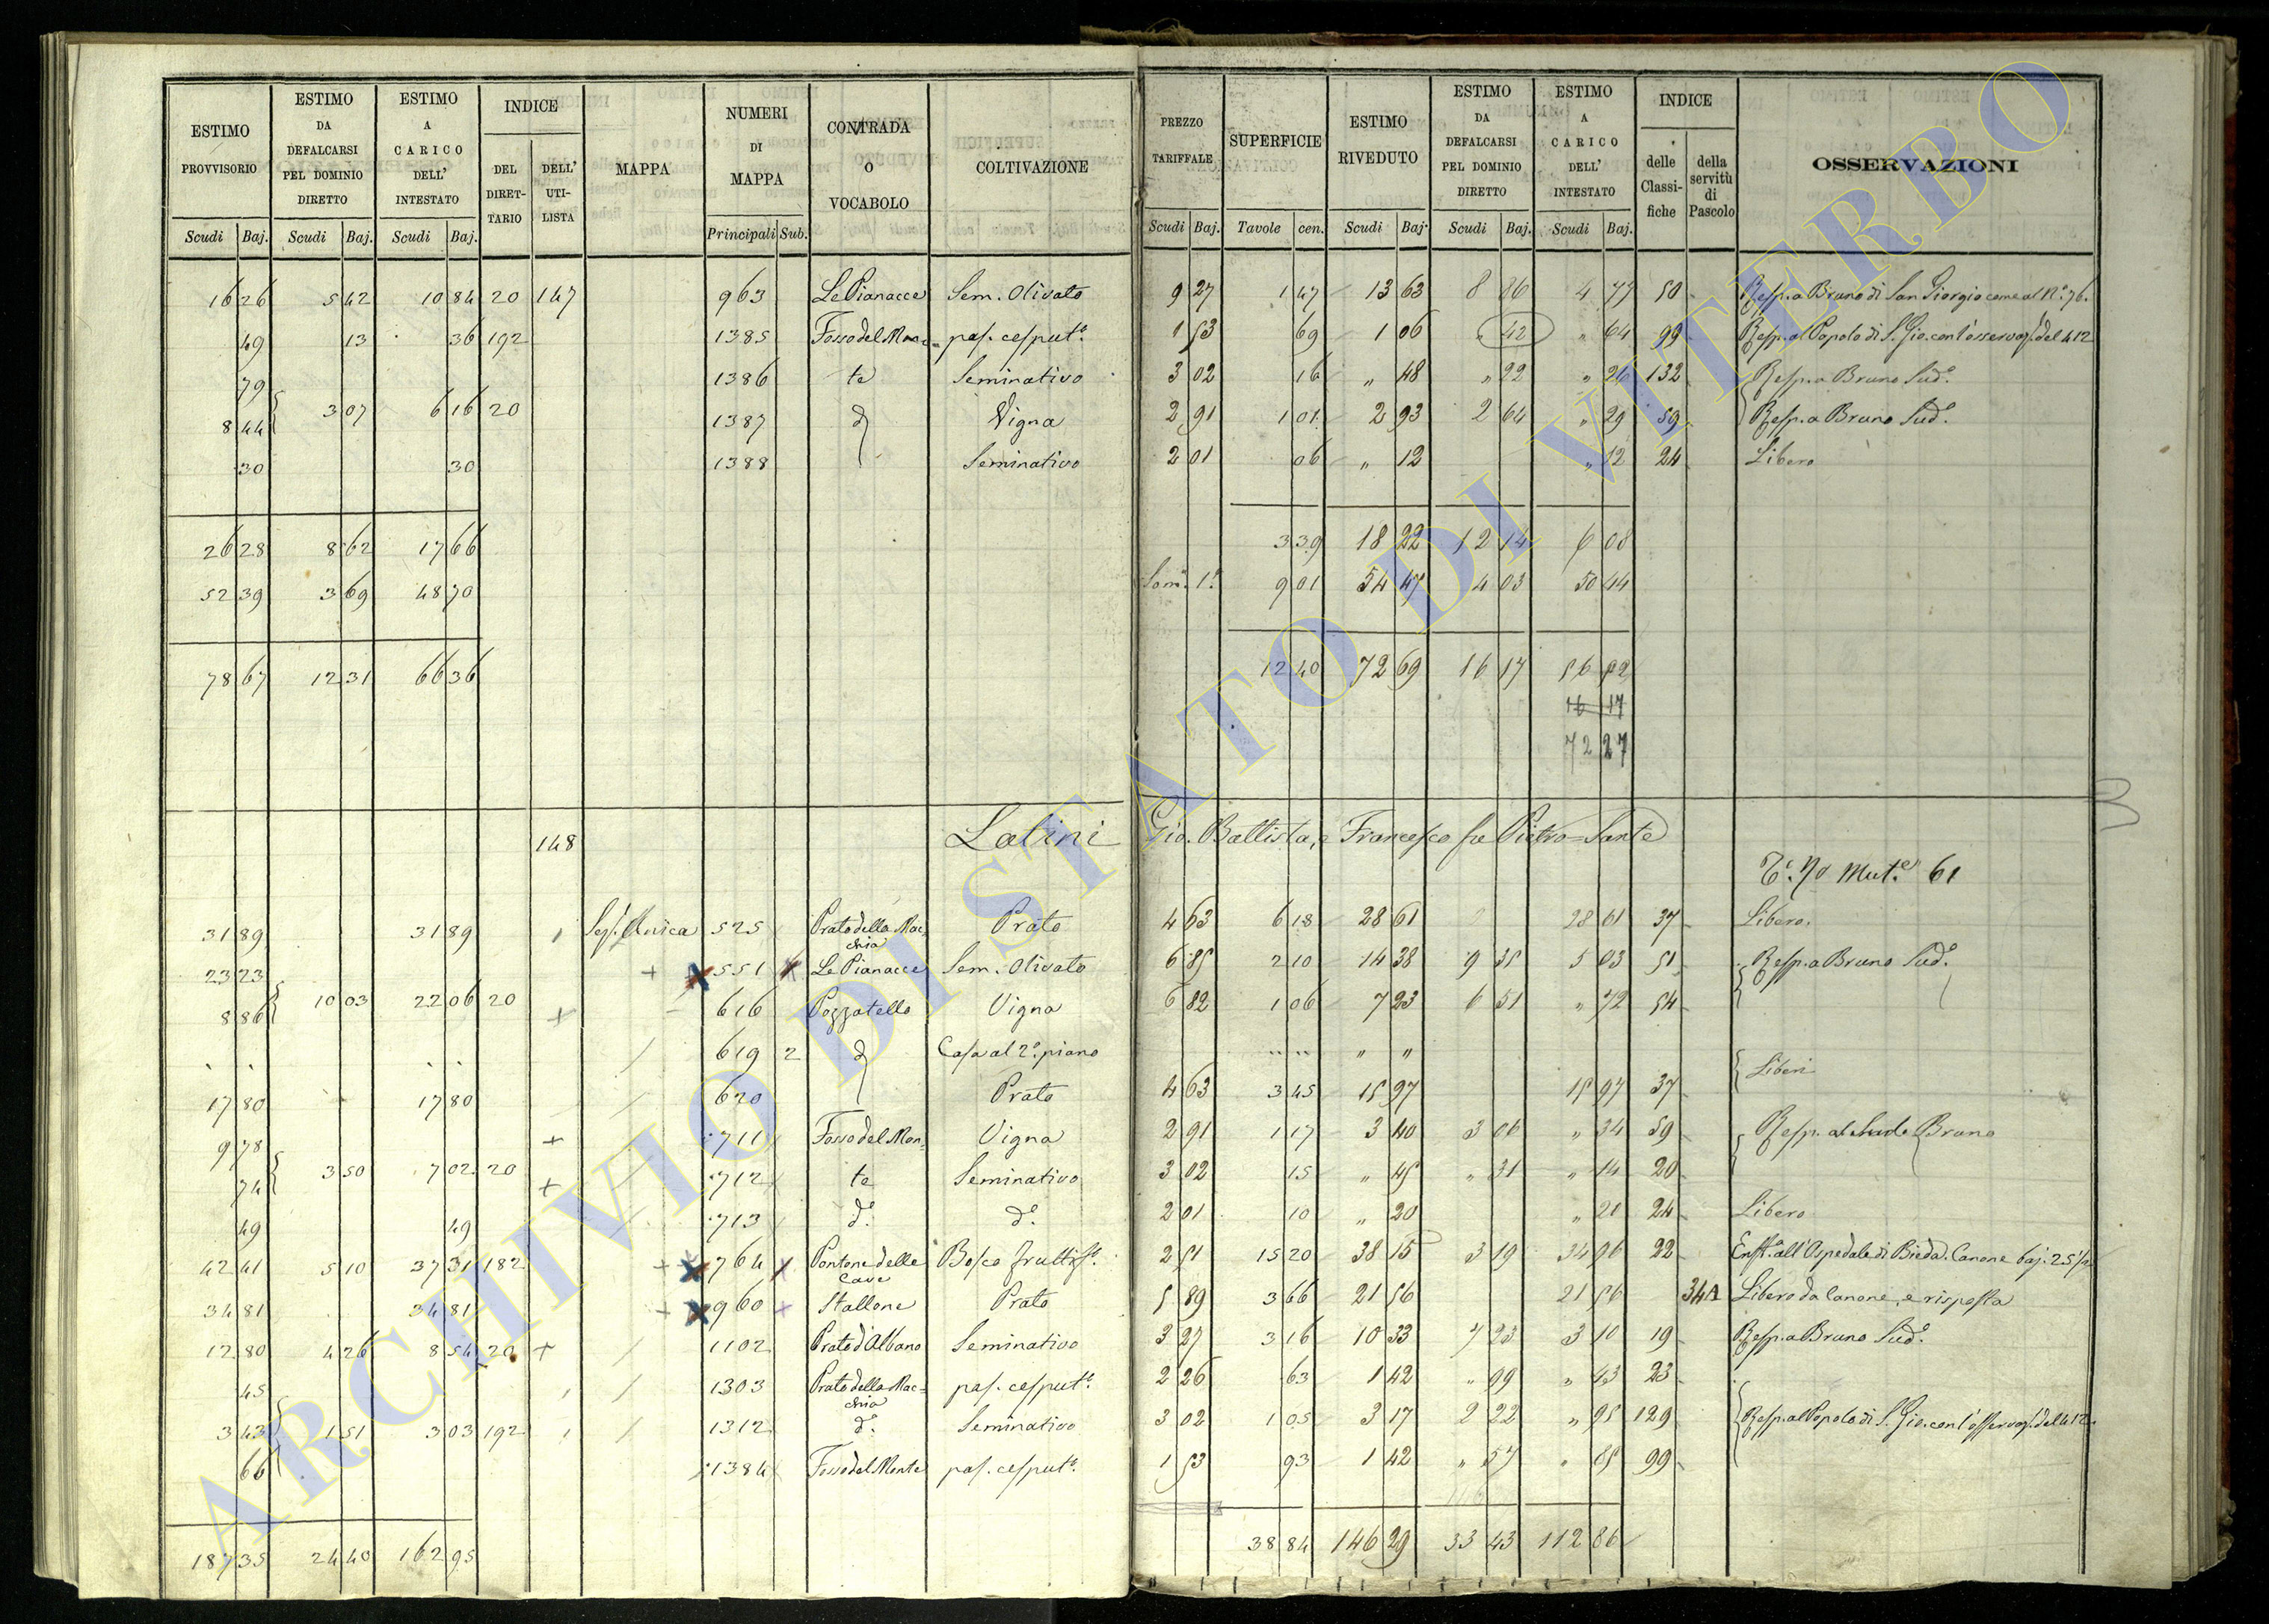 ESTIMO PROVVISORIO | ESTIMO DA DEFALCARSI PEL DOMINIO DIRETTO | ESTIMO A CARICO DELL' INTESTATO | INDICE | MAPPA | NUMERI DI MAPPA | CONTRADA O VOCABOLO | COLTIVAZIONE | PREZZO TARIFFALE | SUPERFICIE | ESTIMO RIVEDUTO | ESTIMO DA DEFALCARSI PEL DOMINIO DIRETTO | ESTIMO A CARICO DELL' INTESTATO | INDICE | OSSERVAZIONI
DEL DIRET- TARIO | DELL' UTI- LISTA | delle Classi- fiche | della servitù di Pascolo
Scudi | Baj. | Scudi | Baj. | Scudi | Baj. | Principali | Sub. | Scudi | Baj. | Tavole | cen. | Scudi | Baj. | Scudi | Baj. | Scudi | Baj.
16 26 | 5 42 | 10 84 | 20 | 147 | 963 | Le Pianacce | Sem. Olivato | 9 27 | 1 47 | 13 63 | 8 86 | 4 77 | 50 | Resp. a Bruno di San Giorgio come al N.° 76.
49 | 13 | 36 | 192 | 1385 | Fosso del Mon= | pas. cesput.° | 1 53 | 69 | 1 06 | " 42 | " 64 | 99 | Resp. al Popolo di S. Gio. con l'osservaz. del 412
79 | 1386 | te | Seminativo | 3 02 | 16 | " 48 | " 22 | " 26 | 132 | Resp. a Bruno Sud.°
8 44 | 3 07 | 6 16 | 20 | 1387 | d | Vigna | 2 91 | 1 01 | 2 93 | 2 64 | " 29 | 59 | Resp. a Bruno Sud.°
30 | 30 | 1388 | Seminativo | 2 01 | 06 | " 12 | " 12 | 24 | Libero
26 28 | 8 62 | 17 66 | 3 39 | 18 22 | 12 14 | 6 08
52 39 | 3 69 | 48 70 | Som. 1.ª | 9 01 | 54 47 | 4 03 | 50 44
78 67 | 12 31 | 66 36 | 12 40 | 72 69 | 16 17 | 56 52
16 17
72 27
148 | Latini Gio. Battista, e Francesco fu Pietro=Sante
T.° 70 Mut.e 61
31 89 | 31 89 | Sez. Unica | 525 | Prato della Mac= chia | Prato | 4 63 | 6 18 | 28 61 | 28 61 | 37 | Libero.
23 23 | 551 | Le Pianacce | Sem. Olivato | 6 85 | 2 10 | 14 38 | 9 35 | 5 03 | 51 | Resp. a Bruno Sud.°
8 86 | 10 03 | 22 06 | 20 | 616 | Pozzatello | Vigna | 6 82 | 1 06 | 7 23 | 6 51 | " 72 | 54
619 | 2 | d | Casa al 2.° piano | " "
17 80 | 17 80 | 620 | Prato | 4 63 | 3 45 | 15 97 | 15 97 | 37 | Liberi
9 78 | 711 | Fosso del Mon= | Vigna | 2 91 | 1 17 | 3 40 | 3 06 | " 34 | 59 | Resp. al Bruno
74 | 3 50 | 7 02 | 20 | 712 | te | Seminativo | 3 02 | 15 | " 45 | " 31 | " 14 | 20
49 | 49 | 713 | d.° | d.° | 2 01 | 10 | " 20 | " 20 | 24 | Libero
42 41 | 5 10 | 37 31 | 182 | 764 | Pontone delle Cave | Bosco fruttif.° | 2 51 | 15 20 | 38 15 | 3 19 | 34 96 | 22 | Enft.a all'Ospedale di Bieda. Canone baj. 25 1/2
34 81 | 34 81 | 960 | Stallone | Prato | 5 89 | 3 66 | 21 56 | 21 56 | 34A | Libero da Canone, e risposta
12 80 | 4 26 | 8 54 | 20 | 1102 | Prato d'Albano | Seminativo | 3 27 | 3 16 | 10 33 | 7 23 | 3 10 | 19 | Resp. a Bruno Sud.°
45 | 1303 | Prato della Mac= chia | pas. cesput.° | 2 26 | 63 | 1 42 | " 99 | " 43 | 23
3 43 | 1 51 | 3 03 | 192 | 1312 | d.° | Seminativo | 3 02 | 1 05 | 3 17 | 2 22 | " 95 | 129 | Resp. al Popolo di S. Gio. con l'osservaz. del 412
66 | 1384 | Fosso del Monte | pas. cesput.° | 1 53 | 93 | 1 42 | " 57 | " 85 | 99
187 35 | 24 40 | 162 95 | 38 84 | 146 29 | 33 43 | 112 86
ARCHIVIO DI STATO DI VITERBO